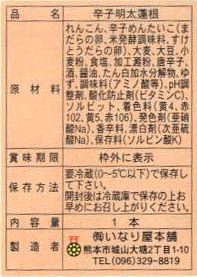 品名 辛子明太蓮根
原材料
れんこん、辛子めんたいこ(ま
だらの卵、米発酵調味料、すけ
とうだらの卵)、大麦、大豆、小
麦粉、食塩、加工澱粉、唐辛子、
酒、醤油、たん白加水分解物、ゆ
ず、調味料(アミノ酸等)、pH調
整剤、酸化防止剤(ビタミンC)、
ソルビット、着色料(黄4、赤
102、黄5、赤106)、発色剤(亜硝
酸Na)、香辛料、漂白剤(次亜硫
酸Na)、保存料(ソルビン酸K)
賞味期限 枠外に表示
保存方法
要冷蔵(0~5℃以下)で保存して
下さい。
開封後は冷蔵庫で保存の上お
早めにお召し上がりください。
内容量 1本
製造者
㈲いなり屋本舗
熊本市城山大塘2丁目1-10
TEL(096)329-8819